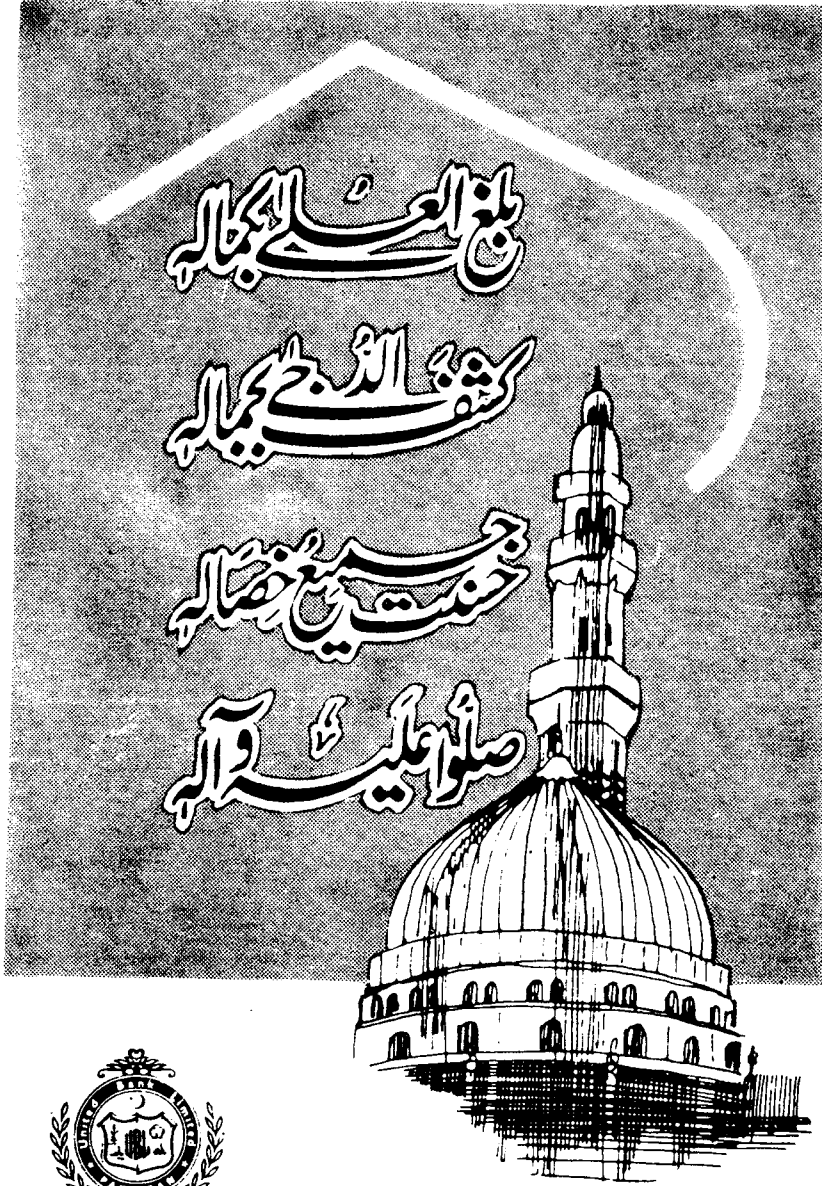 بلغ العلےٰ بکمالہٖ
کشفَ الدُّجیٰ بجمالہٖ
حسنت جمیعُ خِصَالہٖ
صلُّوا علَیہ وَآلہٖ
United Bank Limited